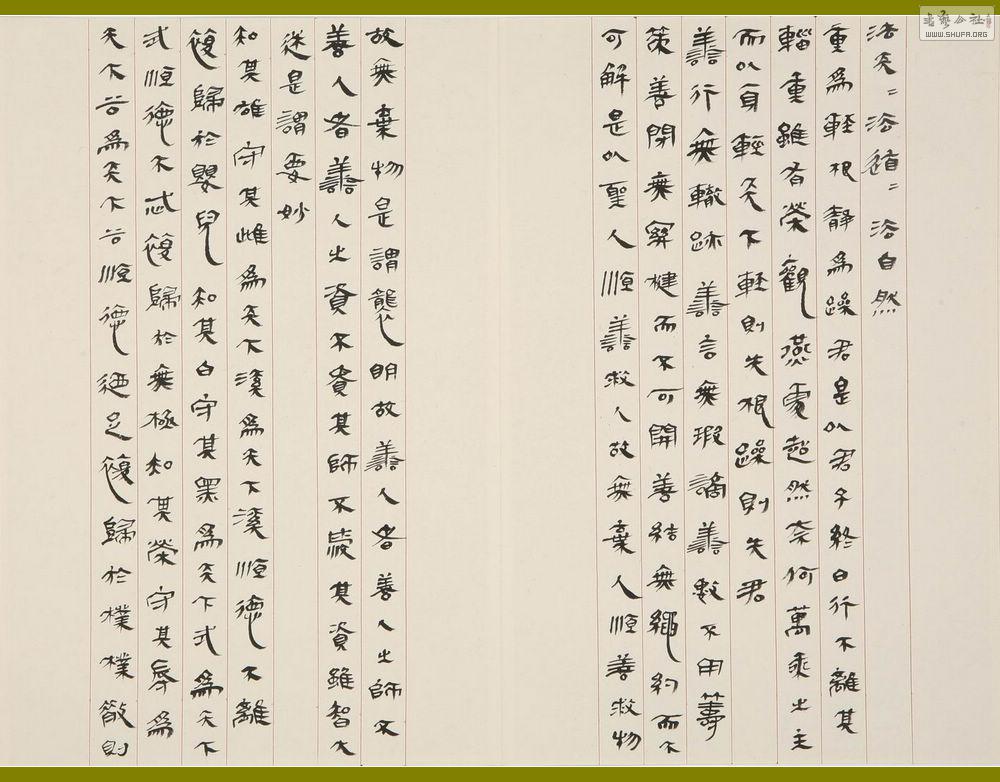 法天天法道道法自然
重為輕根靜為躁君是以君子終日行不離其
輜重雖有榮觀燕處超然奈何萬乘之主
而以身輕天下輕則失根躁則失君
善行無轍跡善言無瑕謫善數不用籌
策善閉無關楗而不可開善結無繩約而不
可解是以聖人順善救人故無棄人順善救物
故無棄物是謂襲明故善人者善人之師不
善人者善人之資不貴其師不愛其資雖智大
迷是謂要妙
知其雄守其雌為天下溪為天下溪順德不離
復歸於嬰兒知其白守其黑為天下式為天下
式順德不忒復歸於無極知其榮守其辱為
天下谷為天下谷順德乃足復歸於樸樸散則
书艺公社
WWW.SHUFA.ORG